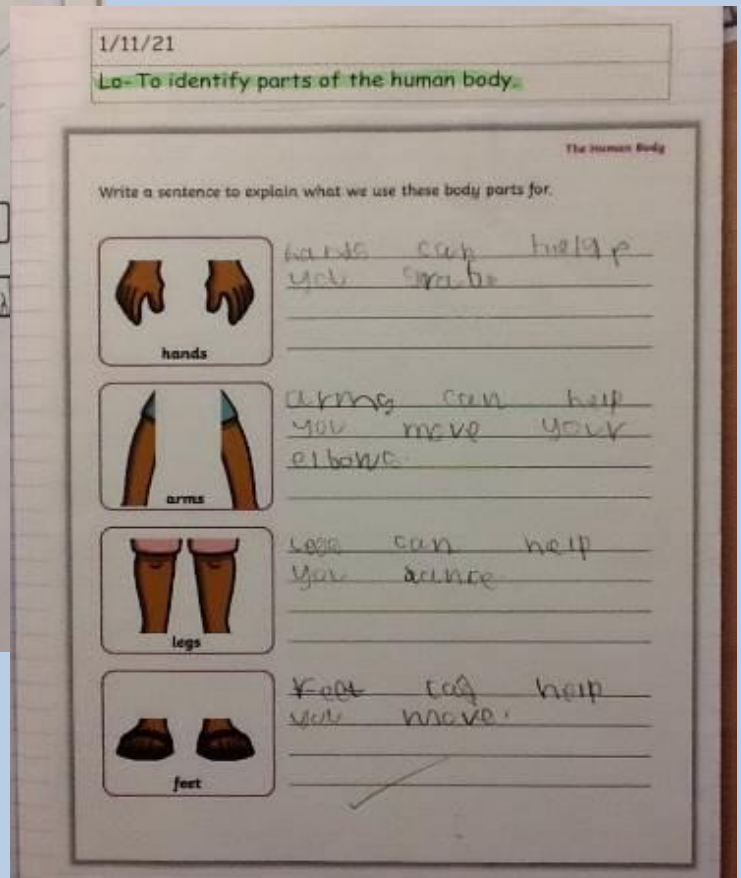 1/11/21
Lo- To identify parts of the human body.
The Human Body
Write a sentence to explain what we use these body parts for.
hands can help
you grab
hands
arms can help
you move your
elbows.
arms
legs can help
you
legs
Feet can help
you move.
feet